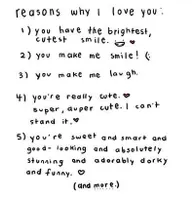 reasons why I love you:
1) you have the brightest,
cutest smile.
2) you make me smile! (:
3) you make me laugh.
4) you're really cute. ♥
super, duper cute. I can't
stand it. ♥
5) you're sweet and smart and
good-looking and absolutely
stunning and adorably dorky
and funny. ♡
(and more.)